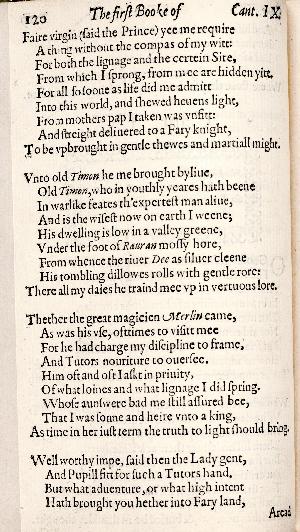 120 The first Booke of Cant. IX.
Faire virgin (said the Prince) yee me require
A thing without the compas of my witt:
For both the lignage and the certein Sire,
From which I sprong, from mee are hidden yitt.
For all so soone as life did me admitt
Into this world, and shewed heuens light,
From mothers pap I taken was vnfitt:
And streight deliuered to a Fary knight,
To be vpbrought in gentle thewes and martiall might.
Vnto old Timon he me brought byliue,
Old Timon, who in youthly yeares hath beene
In warlike feates th'expertest man aliue,
And is the wisest now on earth I weene;
His dwelling is low in a valley greene,
Vnder the foot of Rauran mossy hore,
From whence the riuer Dee as siluer cleene
His tombling billowes rolls with gentle rore:
There all my daies he traind mee vp in vertuous lore.
Thether the great magicien Merlin came,
As was his vse, ofttimes to visitt mee
For he had charge my discipline to frame,
And Tutors nouriture to ouersee.
Him oft and oft I askt in priuity,
Of what loines and what lignage I did spring.
Whose aunswere bad me still assured bee,
That I was sonne and heire vnto a king,
As time in her iust term the truth to light should bring.
Well worthy impe, said then the Lady gent,
And Pupill fitt for such a Tutors hand.
But what aduenture, or what high intent
Hath brought you hether into Fary land,
Aread